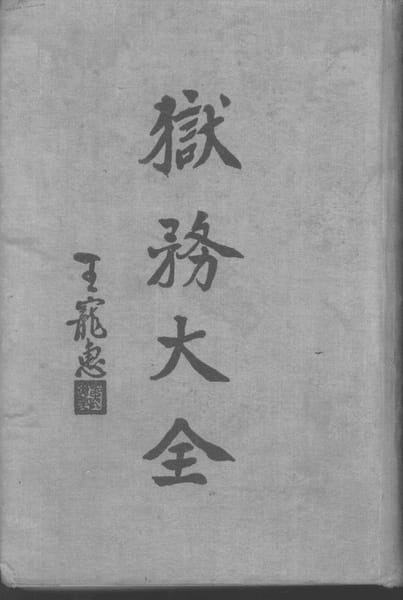 獄務大全
王寵惠